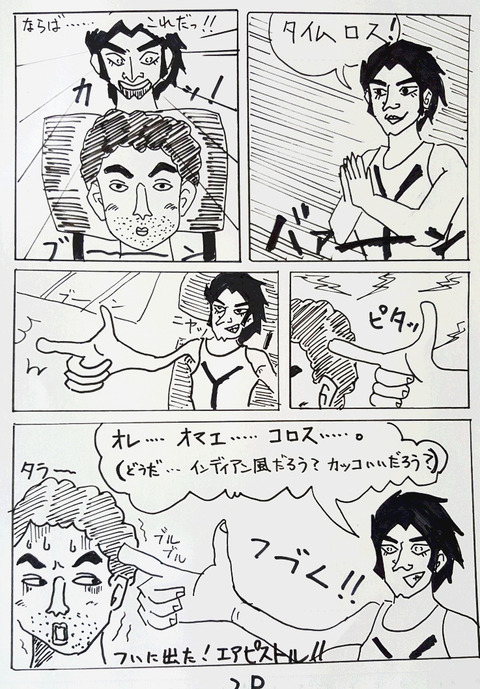 タイム ロス!
バァーン
ならば……これだっ!!
カッ!
ブーーン
ピタッ
ブーーン
ニヤッ
オレ…… オマエ…… コロス……。
(どうだ… インディアン風だろう? カッコいいだろう?)
つづく!!
ブル
ブル
タラー
ついに出た! エアピストル!!